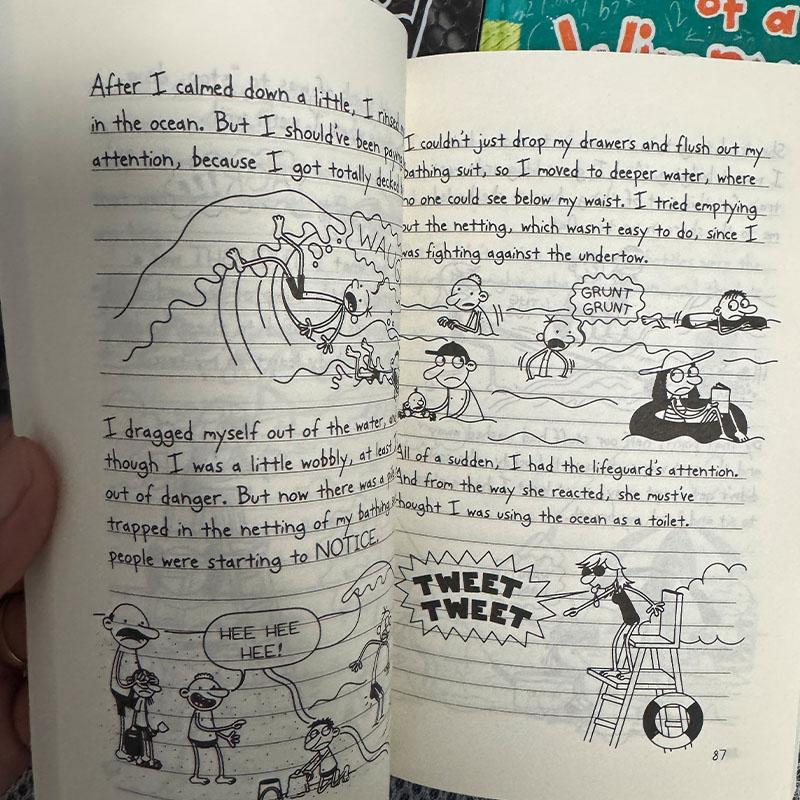 of a
After I calmed down a little, I rinsed
in the ocean. But I should've been paying
attention, because I got totally decked
I dragged myself out of the water,
though I was a little wobbly, at least
out of danger. But now there was a
trapped in the netting of my bathing
people were starting to NOTICE.
HEE HEE
HEE!
I couldn't just drop my drawers and flush out my
bathing suit, so I moved to deeper water, where
no one could see below my waist. I tried emptying
out the netting, which wasn't easy to do, since I
was fighting against the undertow.
GRUNT
GRUNT
All of a sudden, I had the lifeguard's attention.
And from the way she reacted, she must've
thought I was using the ocean as a toilet.
TWEET
TWEET
87